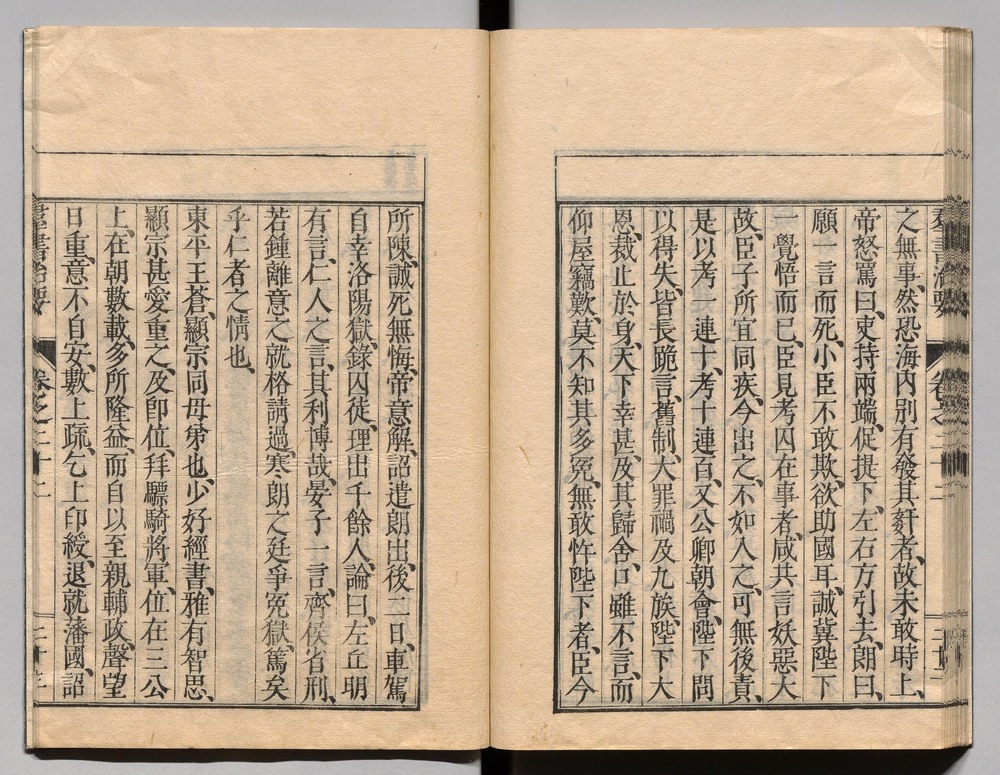 之無事、然恐海內別有發其姧者、故未敢時上、
帝怒罵曰、吏持兩端、促提下、左右方引去、朗曰、
願一言而死、小臣不敢欺、欲助國耳、誠冀陛下
一覺悟而已、臣見考囚在事者、咸共言妖惡大
故、臣子所宜同疾、今出之、不如入之、可無後責、
是以考一連十、考十連百、又公卿朝會、陛下問
以得失、皆長跪言、舊制、大罪禍及九族、陛下大
恩、裁止於身、天下幸甚、及其歸舍、口雖不言、而
仰屋竊歎、莫不知其多冤、無敢忤陛下者、臣今
所陳、誠死無悔、帝意解、詔遣朗出、後二日、車駕
自幸洛陽獄、錄囚徒、理出千餘人、論曰、左丘明
有言、仁人之言、其利博哉、晏子一言、齊侯省刑、
若鍾離意之就格請過、寒朗之廷爭冤獄、篤矣
乎仁者之情也、
東平王蒼、顯宗同母弟也、少好經書、雅有智思、
顯宗甚愛重之、及卽位、拜驃騎將軍、位在三公
上、在朝數載、多所隆益、而自以至親輔政、聲望
日重、意不自安、數上疏、乞上印綬、退就藩國、詔
羣書治要 卷之二十二 二十三